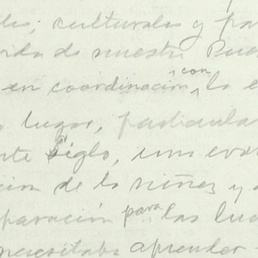 culturales y pa
de nuestro Pue
en coordinación, con la e
lugar, particular
nte siglo, una eva
ción de la niñez y
paración para las luc
necesitaba aprender